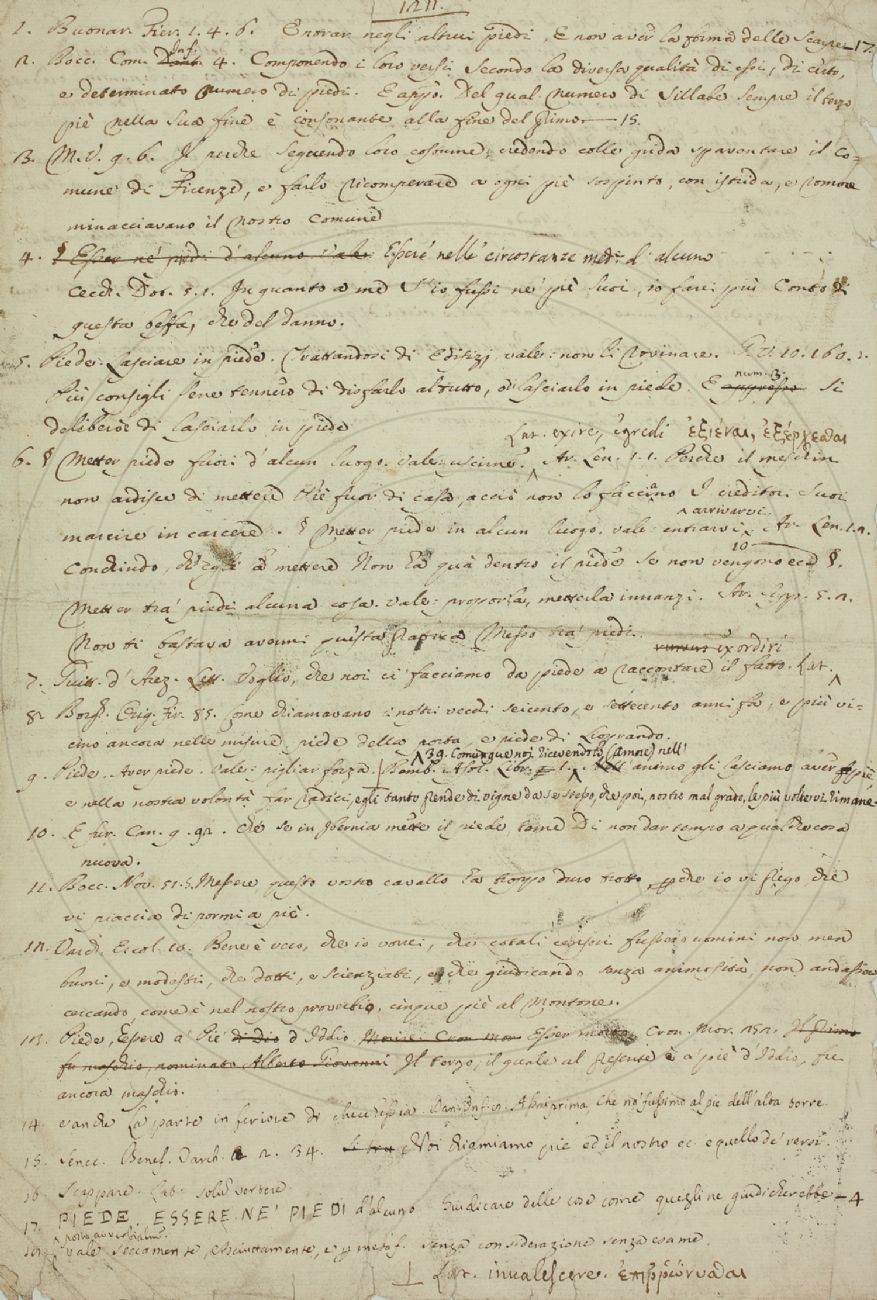 1211.
1. Buonar. Fier. 1. 4. 6. Entrar negli altrui piedi, E non aver la forma delle Scarpe — 17.
2. Bocc. Com. Inf. 4. Componendo i loro versi Secondo la diversa qualità di essi, di certo,
e determinato numero di piedi. E app.o Del qual numero di Sillabe sempre il terzo
piè nella sua fine è consonante alla fine del primo — 15.
3. M. V. 9. 6. I perchè seguendo loro costume, credendo colle grida spaventare il Co-
mune di Firenze, e farlo ricomperare a ogni piè sospinto, con istrida, e romore
minacciavano il nostro Comune
4. § Esser ne' piedi d'alcuno vale Essere nelle circostanze med. d'alcuno
Cecch. Dot. 5. 1. In quanto a me S'io fussi ne' piè suoi, io farei più conto di
questa beffa, che del danno.
5. Piede. Lasciare in piede. Trattandosi di Edifizj vale: non li rovinare. G. V. 10. 160. 2.
Più consigli sene tennero di disfarlo al tutto, o lasciarlo in piede. E appresso num. 3. Si
deliberoe di lasciarlo in piede
Lat. exire, egredi ἐξιέναι, ἐξέρχεσθαι
6. § Metter piede fuori d'alcun luogo. vale: uscirne. Ar. Len. 1. 1. Perchè il meschin
non ardisce di mettere Piè fuor di casa, acciò non lo facciano I creditori suoi
marcire in carcere. § Metter piede in alcun luogo. vale: entrarvi, arrivarvi. Ar. Len. 1. 2.
Conchiudo, ch'egli è a mettere Non ha quà dentro il piede se non vengono ec. §. 10
Metter tra' piedi alcuna cosa. vale: proporla, metterla innanzi. Ar. Supp. 5. 2.
Non ti bastava avermi questa pratica Messo tra' piedi.
7. Guitt. d'Arez. Lett. Voglio, che noi ci facciamo da piede a raccontare il fatto. Lat. exordiri
8. Borgh. Orig. Fir. 85. come chiamavano i nostri vecchi seicento, e settecento anni fa, e più vi-
cino ancora nelle misure, piede della porta, e piede di Liprando.
9. Piede. Aver piede. Vale: pigliar forza. Bemb. Asol. Libr. 1. 39. Comunque noi ricevendolo (amore) nell'animo gli lasciamo aver piè
e nella nostra volontà far radici, egli tanto prende di vigore da se stesso, che poi, nostro mal grado, le più volte vi rimane.
10. E fur. Can. 9. 92. che se in Ibernia mette il piede, teme Di non dar tempo a qualche cosa
nuova.
11. Bocc. Nov. 51. 5. Messere questo vostro cavallo ha troppo duro trotto, perchè io vi priego, che
vi piaccia di pormi a piè.
12. Varch. Ercol. 10. Bene è vero, che io vorrei, che cotali censori fussero uomini non men
buoni, e modesti, che dotti, e scienziati, e che giudicando senza animosità non andassero
cercando, come è nel nostro proverbio, cinque piè al Montone.
13. Piede, Essere a' Piè di Dio d'Iddio Morire Cron Mor Esser morto. Cron. Mor. 252. Il primo
fu maschio, nominato Alberto Giovanni Il terzo, il quale al presente è a piè d'Iddio, fu
ancora maschio.
14. vanche la parte inferiore di checchessia. Dan. Inf. 17. Assai prima, che noi fussimo al piè dell'alta torre
15. Senec. Benef. Varch. 2. 34. Noi chiamiamo piè ed il nostro ec. e quello de' versi.
16. Scappare. Lat. solum vertere
17. PIEDE. ESSERE NE' PIEDI d'alcuno Giudicare delle cose come quegli ne giudicherebbe — 4
posto avverbialm. vale seccamente, asciuttamente, e p. metaf. senza considerazione senza esame.
⊥ Lat. invalescere. ἐπιῤῥώννυσθαι